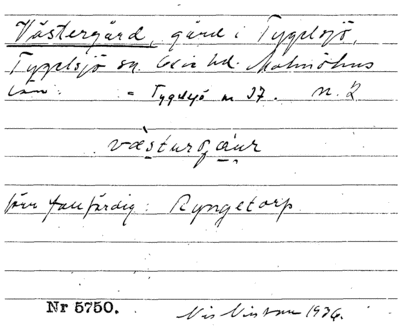 Västergård, gård i Tygelsjö,
Tygelsjö sn. Oxie hd Malmöhus
län. = Tygelsjö nr 37. n. 2
væsturgaur
Ryngetorp
Nr 5750. Nils Nilsson 1936.